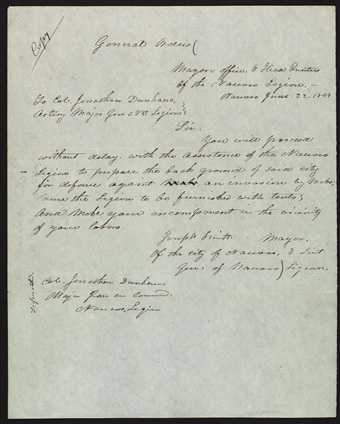 Copy
General Orders
Mayors office, & Head Quarters
of the Nauvoo Legion,
Nauvoo June 22. 1844
To Col. Jonathan Dunham,
Acting Major Gen N. Legion
Sir.
You will proceed
without delay, with the assistance of the Nauvoo
Legion to prepare the back ground of said city
for defence against an invasion by Mobs;
Cause the Legion to be furnished with tents;
and Make your encampment in the vicinity
of your labors.
Joseph Smith. Mayor,
Of the city of Nauvoo, & Liut
Gen. of Nauvoo Legion.
Col Jonathan Dunham.
Major Gen in Comd.
Nauvoo Legion